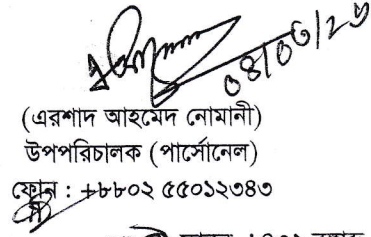 ০৪/০৩/২৬
(এরশাদ আহমেদ নোমানী)
উপপরিচালক (পার্সোনেল)
ফোন : +৮৮০২ ৫৫০১২৩৪৩